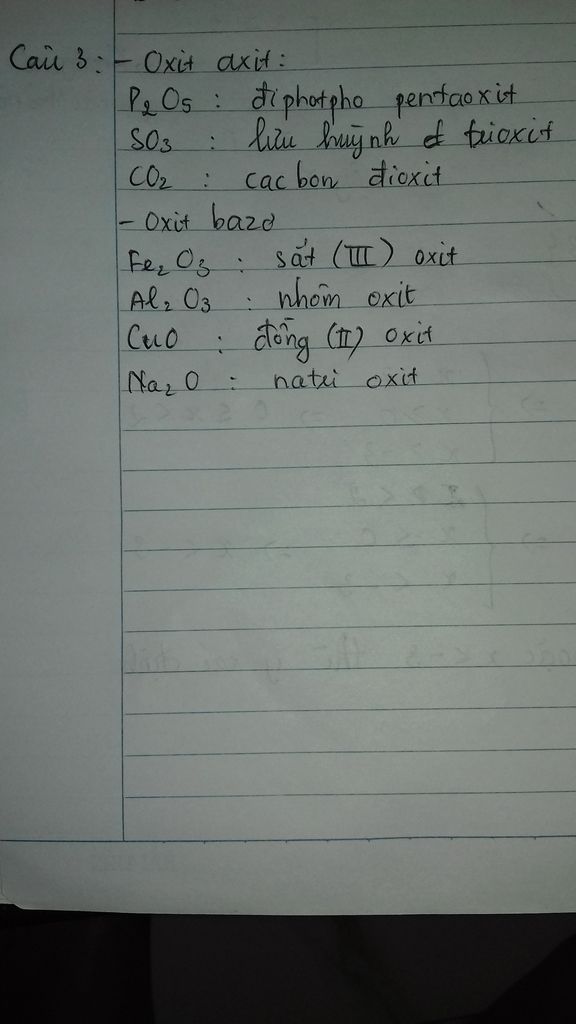 Câu 3: - Oxit axit:
P2O5 : điphotpho pentaoxit
SO3 : lưu huỳnh trioxit
CO2 : cacbon đioxit
- Oxit bazơ
Fe2O3 : sắt (III) oxit
Al2O3 : nhôm oxit
CuO : đồng (II) oxit
Na2O : natri oxit